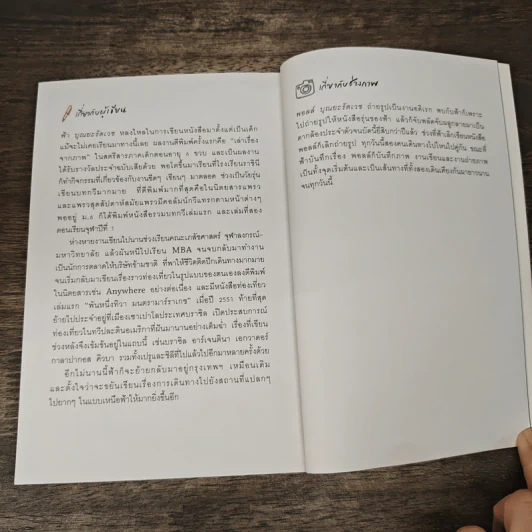 เกี่ยวกับผู้เขียน
ฟ้า บุณยะรัตเวช หลงใหลในการเขียนหนังสือมาตั้งแต่เป็นเด็ก
แม้จะไม่เคยเรียนมาทางนี้เลย ผลงานตีพิมพ์ครั้งแรกคือ "เล่าเรื่อง
จากภาพ" ในสตรีสารภาคเด็กตอนอายุ 4 ขวบ และเป็นผลงาน
ได้รับรางวัลประจำฉบับเสียด้วย พอโตขึ้นมาเรียนที่โรงเรียนราชินี
ก็ทำกิจกรรมที่เกี่ยวข้องกับงานขีดๆ เขียนๆ มาตลอด ช่วงเป็นวัยรุ่น
เขียนบทกวีมากมาย ที่ตีพิมพ์มากที่สุดคือในนิตยสารแพรว
และแพรวสุดสัปดาห์สมัยแพรวมีคอลัมน์กวีแทรกตามหน้าต่างๆ
พออยู่ ม.6 ก็ได้พิมพ์หนังสือรวมบทกวีเล่มแรก และเล่มที่สอง
ตอนเรียนจุฬาปีที่ 1
ห่างหายงานเขียนไปนานช่วงเรียนคณะเภสัชศาสตร์ จุฬาลงกรณ์-
มหาวิทยาลัย แล้วผันหนีไปเรียน MBA จนจบกลับมาทำงาน
เป็นนักการตลาดให้บริษัทข้ามชาติ ที่พาให้ชีวิตติดปีกเดินทางมากมาย
จนเริ่มกลับมาเขียนเรื่องราวท่องเที่ยวในรูปแบบของตนเองลงตีพิมพ์
ในนิตยสารเช่น Anywhere อย่างต่อเนื่อง และมีหนังสือท่องเที่ยว
เล่มแรก "พันหนึ่งทิวา มนตรามาร์ราเกช" เมื่อปี 2551 ท้ายที่สุด
ย้ายไปประจำอยู่ที่เมืองเซาเปาโลประเทศบราซิล เปิดประสบการณ์
ท่องเที่ยวในทวีปละตินอเมริกาที่ฝันมานานอย่างเต็มฉ่ำ เรื่องที่เขียน
ช่วงหลังจึงเข้มข้นอยู่ในแถบนี้ เช่นบราซิล อาร์เจนตินา เอกวาดอร์
กาลาปากอส คิวบา รวมทั้งเปรูและชิลีที่ไปแล้วไปอีกมาหลายครั้งด้วย
อีกไม่นานนี้ฟ้าก็จะย้ายกลับมาอยู่กรุงเทพฯ เหมือนเดิม
และตั้งใจว่าจะขยันเขียนเรื่องการเดินทางไปยังสถานที่แปลกๆ
ไปยากๆ ในแบบเหนือฟ้าให้มากยิ่งขึ้นอีก
เกี่ยวกับช่างภาพ
พอลล์ บุณยะรัตเวช ถ่ายรูปเป็นงานอดิเรก พบกับฟ้าก็เพราะ
ไปถ่ายรูปให้หนังสือรุ่นของฟ้า แล้วก็จับพลัดจับผลูกลายมาเป็น
ตากล้องประจำตัวจนบัดนี้ยี่สิบกว่าปีแล้ว ช่วงที่ฟ้าเลิกเขียนหนังสือ
พอลล์ก็เลิกถ่ายรูป ทุกวันนี้สองคนเดินทางไปไหนไปคู่กัน ขณะที่
ฟ้าบันทึกเรื่อง พอลล์ก็บันทึกภาพ งานเขียนและงานถ่ายภาพ
เป็นทั้งจุดเริ่มต้นและเป็นเส้นทางที่ทั้งสองเดินเคียงกันมายาวนาน
จนทุกวันนี้